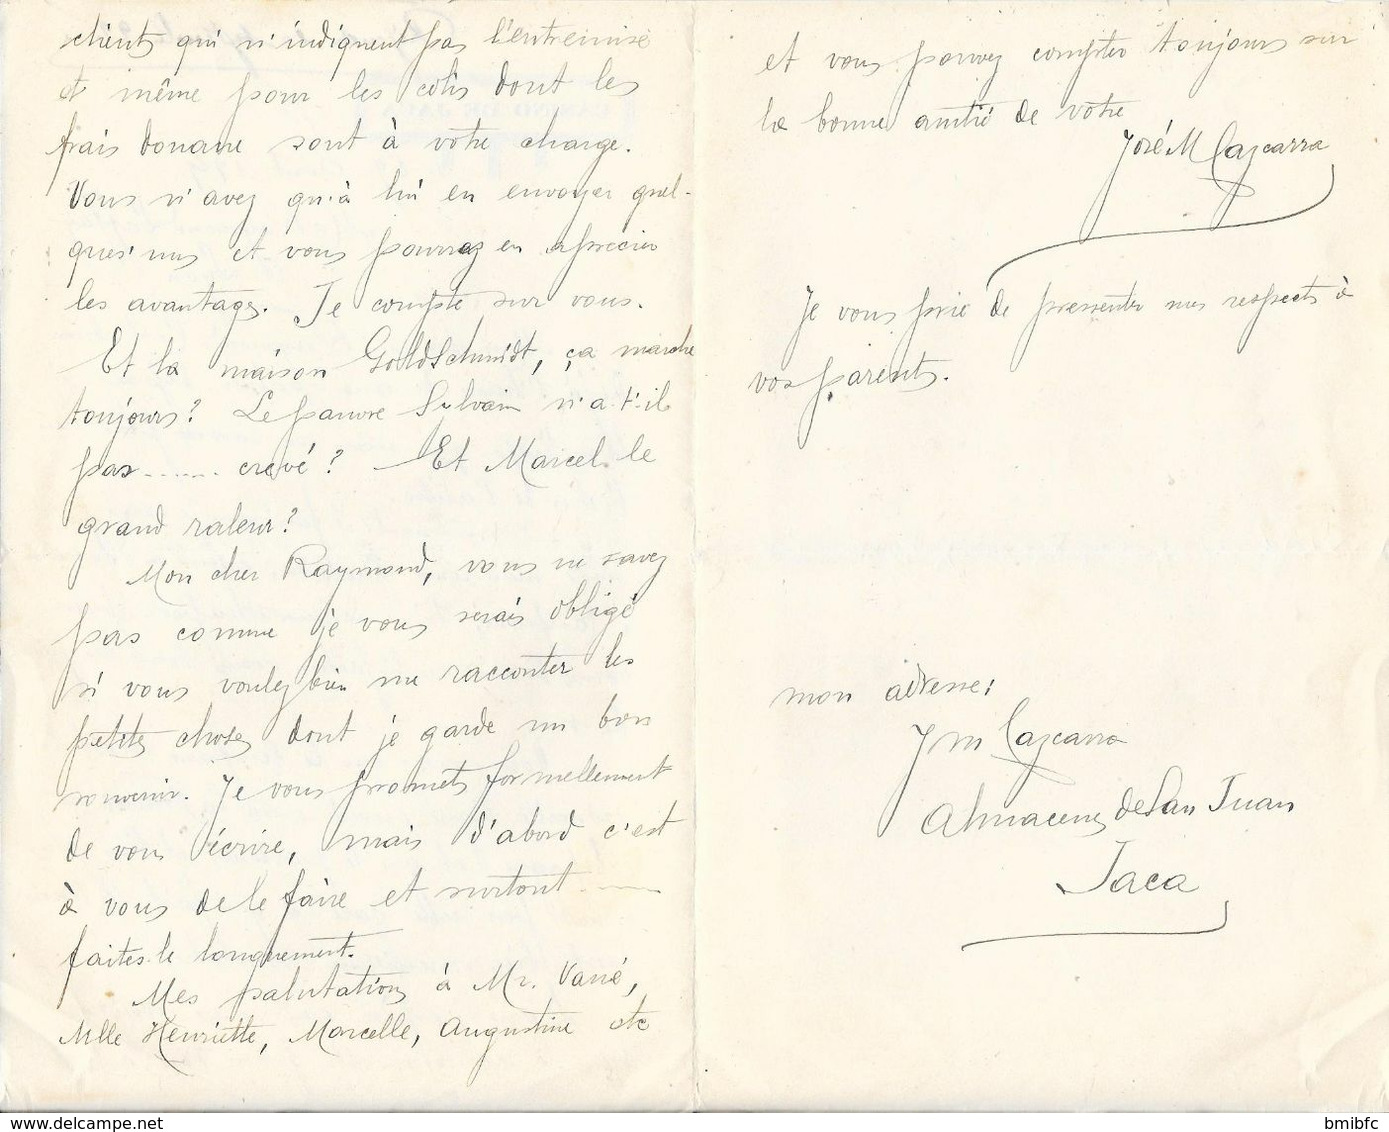 clients qui n'indiquent pas l'entremise
et même pour les colis dont les
frais douane sont à votre charge.
Vous n'avez qu'à lui en envoyer quel-
ques'uns et vous pourrez en aprecier
les avantages. Je compte sur vous.
Et la maison Goldschmidt, ça marche
toujours? Le pauvre Sylvain n'a-t'-il
pas....... crevé? Et Marcel le
grand raleur?
Mon cher Raymond, vous ne savez
pas comme je vous serais obligé
si vous voulez bien me racconter les
petites choses dont je garde un bon
souvenir. Je vous promets formellement
de vous écrire, mais d'abord c'est
à vous de le faire et surtout
faites-le longuement.
Mes salutations à Mr. Vané,
Mlle Henriette, Marcelle, Augustine etc
et vous pouvez compter toujours sur
la bonne amitié de votre
José M Cazcarra
Je vous prie de pressenter mes respects à
vos parents.
mon adresse:
J M Cazcarra
Almacenes de San Juan
Jaca
bmibfc